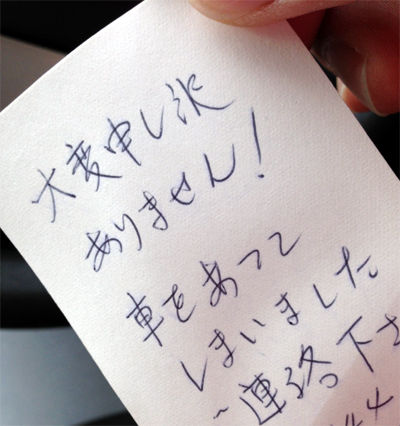 大変申し訳
ありません!
車をあてて
しまいました
連絡下さ
44